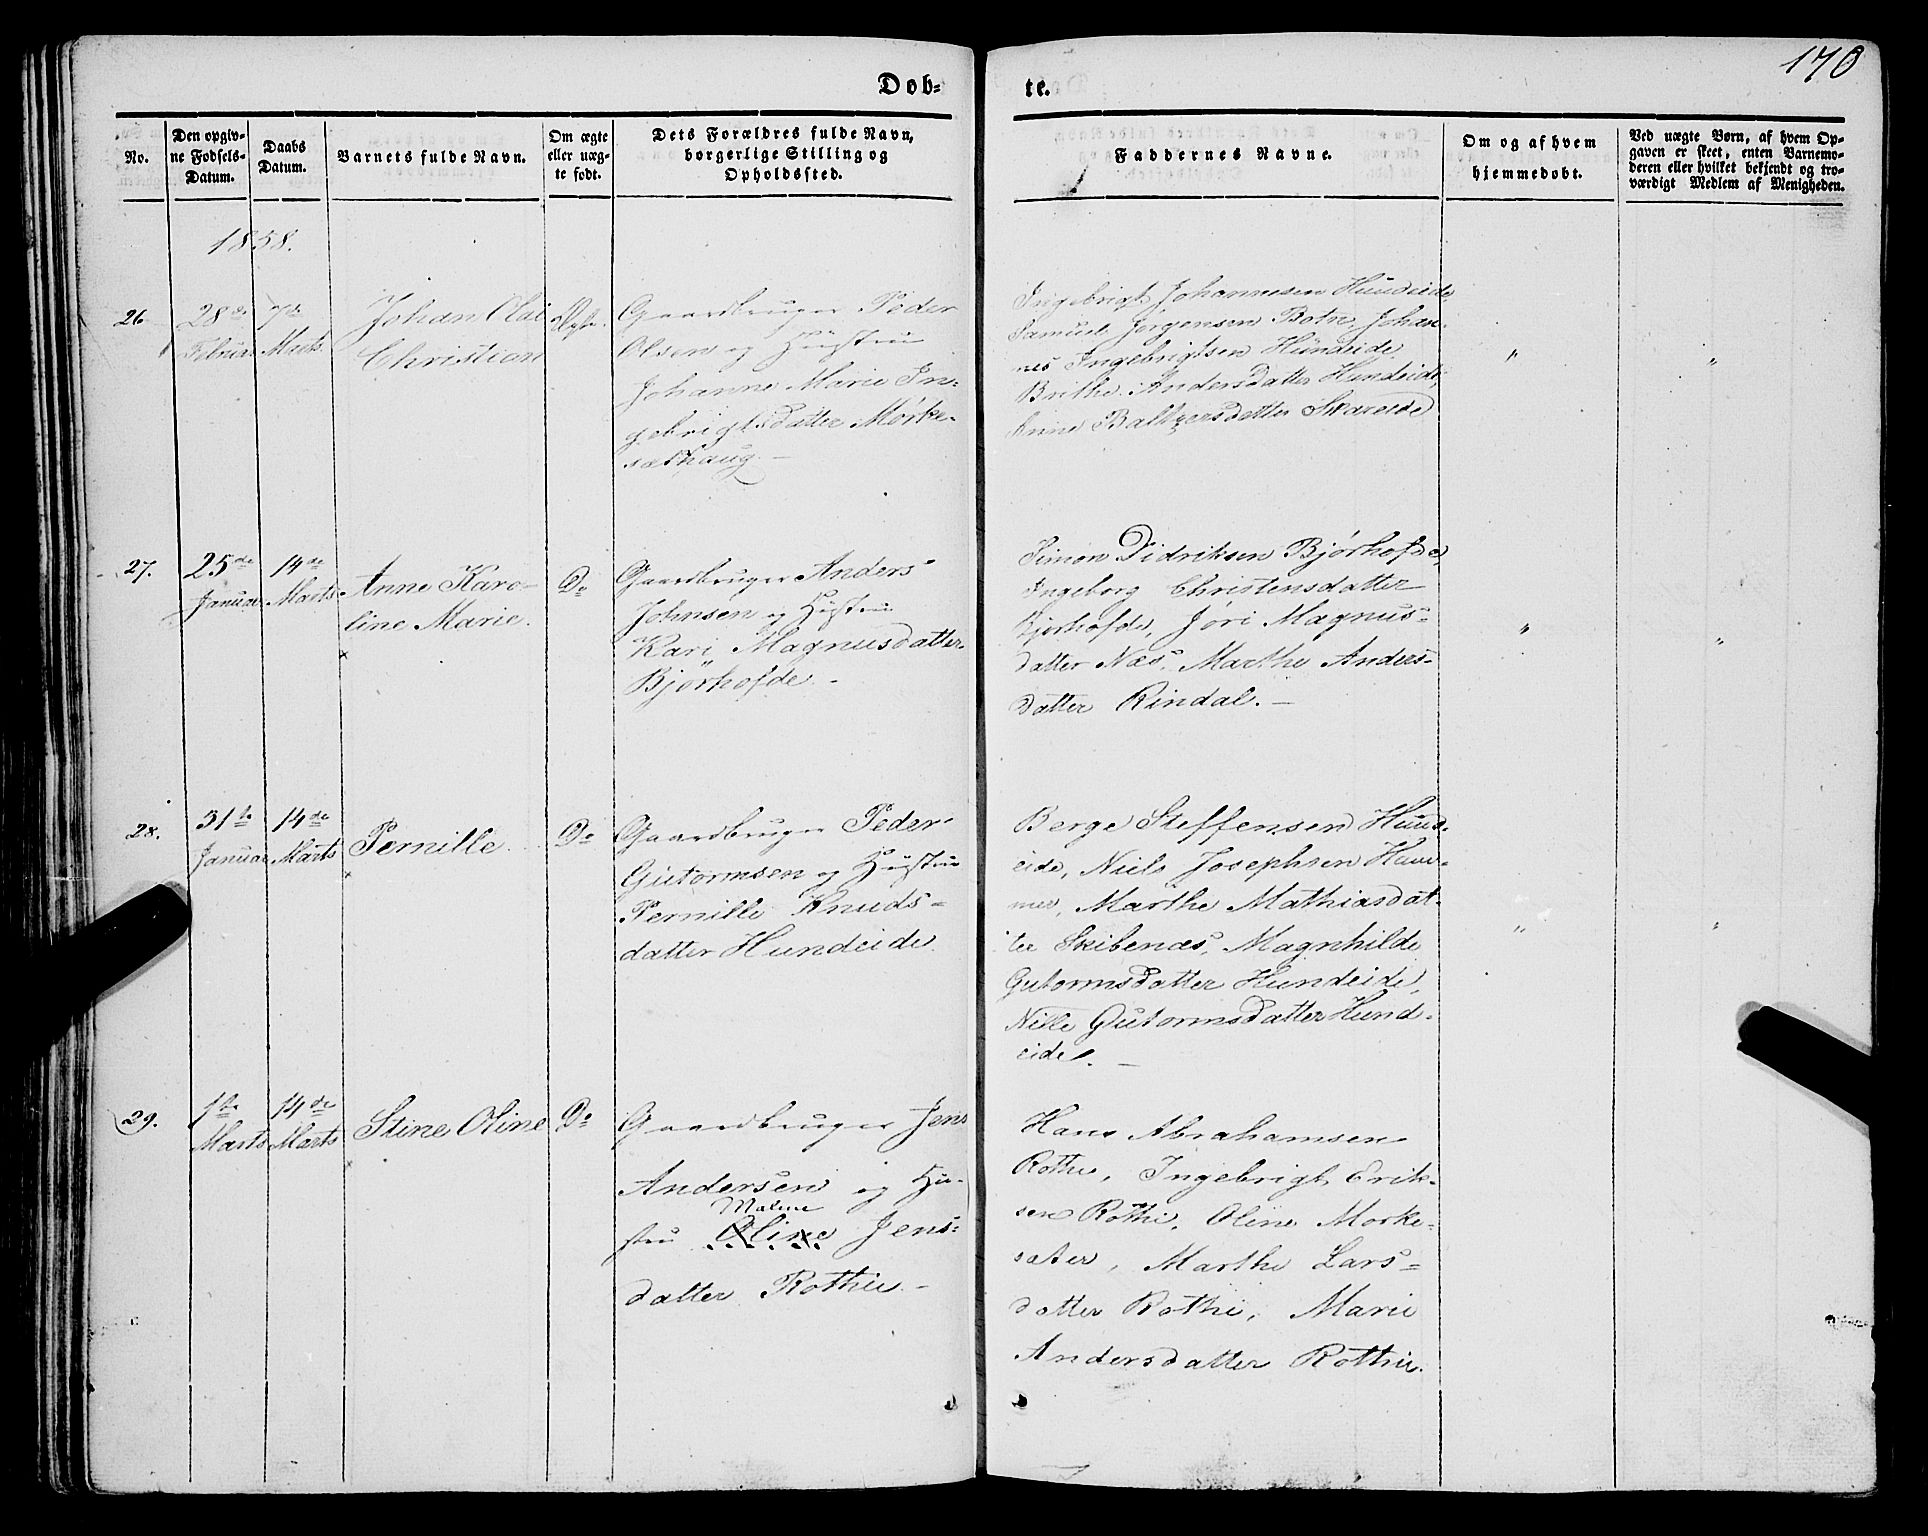 170
Døb=
te.
No.
Den opgiv-
ne Fødsels-
Datum.
Daabs
Datum.
Barnets fulde Navn.
Om ægte
eller uæg-
te født.
Dets Forældres fulde Navn,
borgerlige Stilling og
Opholdssted.
Faddernes Navne.
Om og af hvem
hjemmedøbt.
Ved uægte Børn, af hvem Op-
gaven er skeet, enten Barnemo-
deren eller hvilket bekjendt og tro-
værdigt Medlem af Menigheden.
1858.
26
28de
Februar
7de
Marts.
Johan Olai
Christian
Ægte.
Gaardbruger Peder
Olsen og Hustru
Johanne Marie In-
gebrigtsdatter Mørke-
sæthaug. –
Ingebrigt Johannesen Hundeide,
Samuel Jørgensen Botn, Johan-
nes Ingebrigtsen Hundeide
Brithe Andersdatter Hundeide,
Anne Baltzersdatter Skareide
"
"
27.
25de
Januar
14de
Marts
Anne Karo-
line Marie.
Do
Gaardbruger Anders
Johnsen og Hustru
Kari Magnusdatter
Bjørhofde. –
Simon Didriksen Bjørhofde,
Ingeborg Christensdatter
Bjørhofde, Jøri Magnus-
datter Næs, Marthe Anders-
datter Rindal. –
"
"
28.
31te
Januar
14de
Marts
Pernille.
Do
Gaardbruger Peder
Gutormsen og Hustru
Pernille Knuds-
datter Hundeide.
Berge Steffensen Hund-
eide, Niels Josephsen Ham-
mer, Marthe Mathiasdat-
ter Skibenæs, Magnhilde
Gutormsdatter Hundeide,
Nille Gutormsdatter Hund-
eide. –
"
"
29.
1te
Marts
14de
Marts
Stine Oline
Do
Gaardbruger Jens
Andersen og Hu-
Maline
stru Oline Jens-
datter Rothie. –
Hans Abrahamsen
Rothe, Ingebrigt Erik-
sen Rothe, Oline Morke-
sæter, Marthe Lars-
datter Rothe, Marie
Andersdatter Rothie.